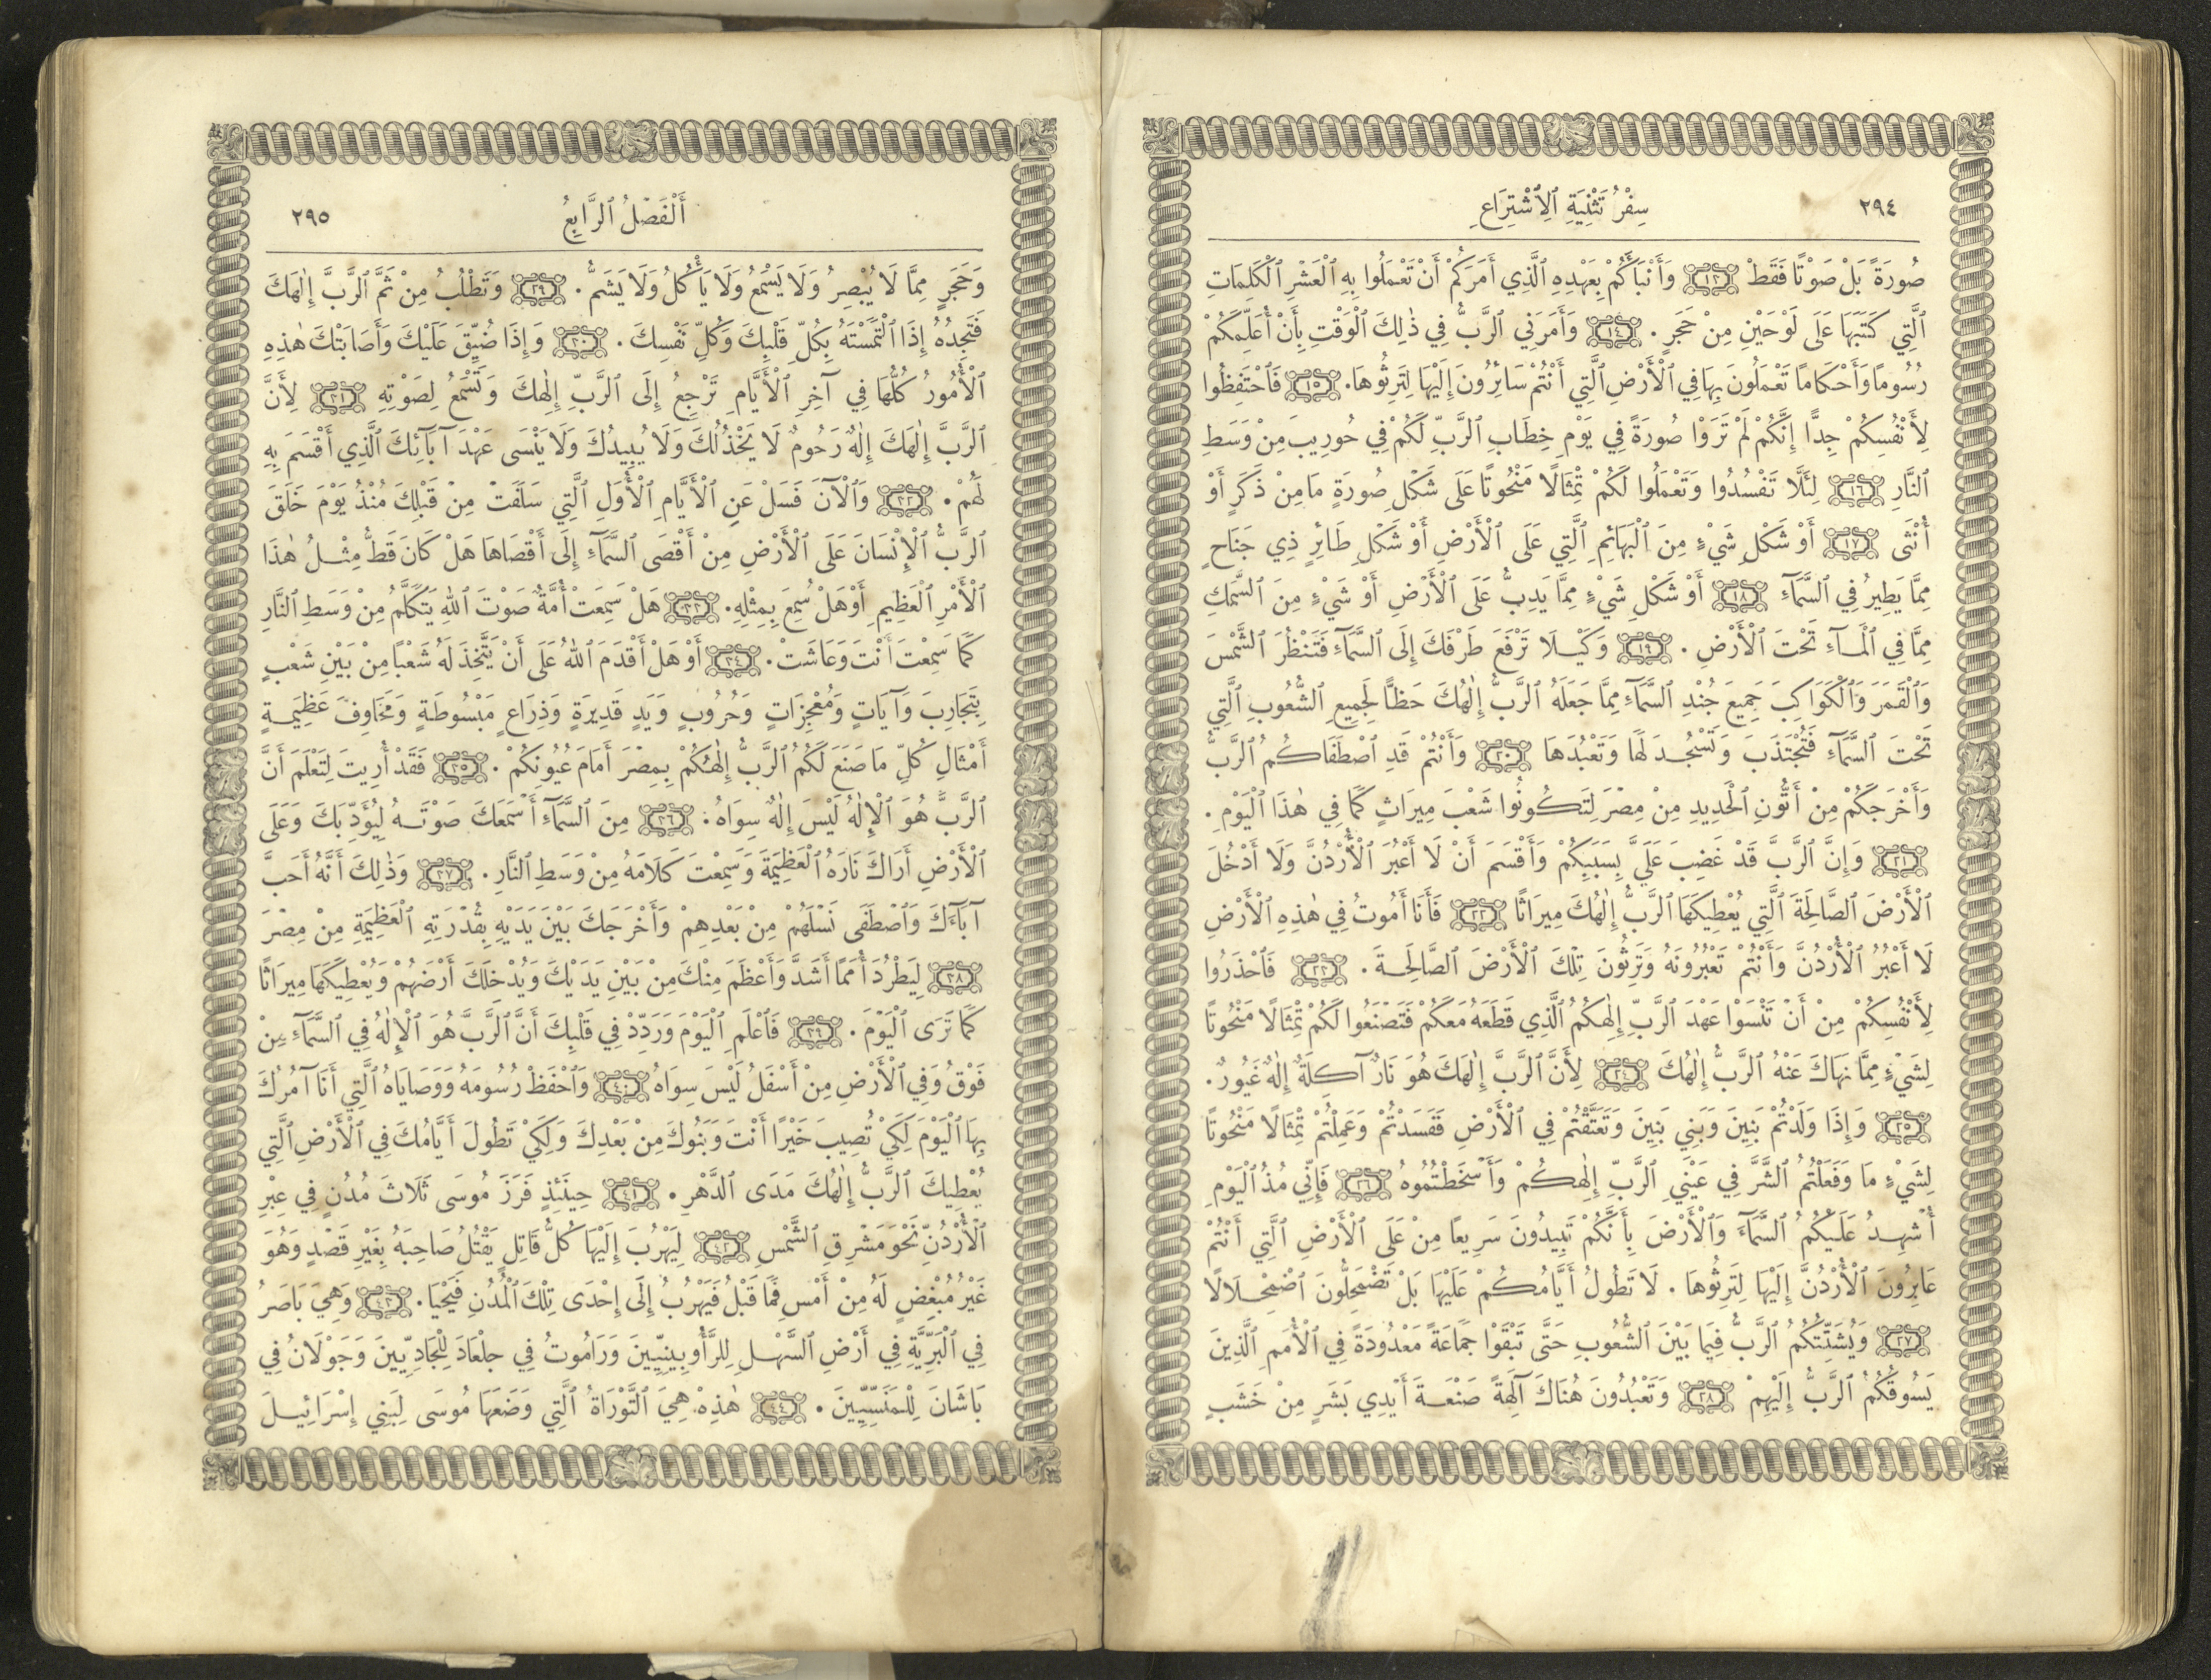 ٢٩٤ سِفْرُ تَثْنِيَةِ ٱلِٱشْتِرَاعِ
صُورَةً بَلْ صَوْتًا فَقَطْ ١٣ وَأَنْبَأَكُمْ بِعَهْدِهِ ٱلَّذِي أَمَرَكُمْ أَنْ تَعْمَلُوا بِهِ ٱلْعَشْرِ ٱلْكَلِمَاتِ
ٱلَّتِي كَتَبَهَا عَلَى لَوْحَيْنِ مِنْ حَجَرٍ . ١٤ وَأَمَرَنِي ٱلرَّبُّ فِي ذٰلِكَ ٱلْوَقْتِ بِأَنْ أُعَلِّمَكُمْ
رُسُومًا وَأَحْكَامًا تَعْمَلُونَ بِهَا فِي ٱلْأَرْضِ ٱلَّتِي أَنْتُمْ سَائِرُونَ إِلَيْهَا لِتَرِثُوهَا . ١٥ فَٱحْتَفِظُوا
لِأَنْفُسِكُمْ جِدًّا إِنَّكُمْ لَمْ تَرَوْا صُورَةً فِي يَوْمِ خِطَابِ ٱلرَّبِّ لَكُمْ فِي حُورِيبَ مِنْ وَسَطِ
ٱلنَّارِ ١٦ لِئَلَّا تَفْسُدُوا وَتَعْمَلُوا لَكُمْ تِمْثَالًا مَنْحُوتًا عَلَى شَكْلِ صُورَةٍ مَا مِنْ ذَكَرٍ أَوْ
أُنْثَى ١٧ أَوْ شَكْلِ شَيْءٍ مِنَ ٱلْبَهَائِمِ ٱلَّتِي عَلَى ٱلْأَرْضِ أَوْ شَكْلِ طَائِرٍ ذِي جَنَاحٍ
مِمَّا يَطِيرُ فِي ٱلسَّمَآءِ ١٨ أَوْ شَكْلِ شَيْءٍ مِمَّا يَدِبُّ عَلَى ٱلْأَرْضِ أَوْ شَيْءٍ مِنَ ٱلسَّمَكِ
مِمَّا فِي ٱلْمَآءِ تَحْتَ ٱلْأَرْضِ . ١٩ وَكَيْلَا تَرْفَعَ طَرْفَكَ إِلَى ٱلسَّمَآءِ فَتَنْظُرَ ٱلشَّمْسَ
وَٱلْقَمَرَ وَٱلْكَوَاكِبَ جَمِيعَ جُنْدِ ٱلسَّمَآءِ مِمَّا جَعَلَهُ ٱلرَّبُّ إِلٰهُكَ حَظًّا لِجَمِيعِ ٱلشُّعُوبِ ٱلَّتِي
تَحْتَ ٱلسَّمَآءِ فَتُجْتَذَبَ وَتَسْجُدَ لَهَا وَتَعْبُدَهَا ٢٠ وَأَنْتُمْ قَدِ ٱصْطَفَاكُمُ ٱلرَّبُّ
وَأَخْرَجَكُمْ مِنْ أَتُّونِ ٱلْحَدِيدِ مِنْ مِصْرَ لِتَكُونُوا شَعْبَ مِيرَاثٍ كَمَا فِي هٰذَا ٱلْيَوْمِ .
٢١ وَإِنَّ ٱلرَّبَّ قَدْ غَضِبَ عَلَيَّ بِسَبَبِكُمْ وَأَقْسَمَ أَنْ لَا أَعْبُرَ ٱلْأُرْدُنَّ وَلَا أَدْخُلَ
ٱلْأَرْضَ ٱلصَّالِحَةَ ٱلَّتِي يُعْطِيكَهَا ٱلرَّبُّ إِلٰهُكَ مِيرَاثًا ٢٢ فَأَنَا أَمُوتُ فِي هٰذِهِ ٱلْأَرْضِ
لَا أَعْبُرُ ٱلْأُرْدُنَّ وَأَنْتُمْ تَعْبُرُونَهُ وَتَرِثُونَ تِلْكَ ٱلْأَرْضَ ٱلصَّالِحَةَ . ٢٣ فَٱحْذَرُوا
لِأَنْفُسِكُمْ مِنْ أَنْ تَنْسَوْا عَهْدَ ٱلرَّبِّ إِلٰهِكُمُ ٱلَّذِي قَطَعَهُ مَعَكُمْ فَتَصْنَعُوا لَكُمْ تِمْثَالًا مَنْحُوتًا
لِشَيْءٍ مِمَّا نَهَاكَ عَنْهُ ٱلرَّبُّ إِلٰهُكَ ٢٤ لِأَنَّ ٱلرَّبَّ إِلٰهَكَ هُوَ نَارٌ آكِلَةٌ إِلٰهٌ غَيُورٌ .
٢٥ وَإِذَا وَلَدْتُمْ بَنِينَ وَبَنِي بَنِينَ وَتَعَتَّقْتُمْ فِي ٱلْأَرْضِ فَفَسَدْتُمْ وَعَمِلْتُمْ تِمْثَالًا مَنْحُوتًا
لِشَيْءٍ مَا وَفَعَلْتُمُ ٱلشَّرَّ فِي عَيْنَيِ ٱلرَّبِّ إِلٰهِكُمْ وَأَسْخَطْتُمُوهُ ٢٦ فَإِنِّي مُذُ ٱلْيَوْمِ
أُشْهِدُ عَلَيْكُمُ ٱلسَّمَآءَ وَٱلْأَرْضَ بِأَنَّكُمْ تَبِيدُونَ سَرِيعًا مِنْ عَلَى ٱلْأَرْضِ ٱلَّتِي أَنْتُمْ
عَابِرُونَ ٱلْأُرْدُنَّ إِلَيْهَا لِتَرِثُوهَا . لَا تَطُولُ أَيَّامُكُمْ عَلَيْهَا بَلْ تَضْمَحِلُّونَ ٱضْمِحْلَالًا
٢٧ وَيُشَتِّتُكُمُ ٱلرَّبُّ فِيَما بَيْنَ ٱلشُّعُوبِ حَتَّى تَبْقَوْا جَمَاعَةً مَعْدُودَةً فِي ٱلْأُمَمِ ٱلَّذِينَ
يَسُوقُكُمُ ٱلرَّبُّ إِلَيْهِمْ ٢٨ وَتَعْبُدُونَ هُنَاكَ آلِهَةً صَنْعَةَ أَيْدِي بَشَرٍ مِنْ خَشَبٍ
أَلْفَصْلُ ٱلرَّابِعُ ٢٩٥
وَحَجَرٍ مِمَّا لَا يُبْصِرُ وَلَا يَسْمَعُ وَلَا يَأْكُلُ وَلَا يَشَمُّ . ٢٩ وَتَطْلُبُ مِنْ ثَمَّ ٱلرَّبَّ إِلٰهَكَ
فَتَجِدُهُ إِذَا ٱلْتَمَسْتَهُ بِكُلِّ قَلْبِكَ وَكُلِّ نَفْسِكَ . ٣٠ وَإِذَا ضُيِّقَ عَلَيْكَ وَأَصَابَتْكَ هٰذِهِ
ٱلْأُمُورُ كُلُّهَا فِي آخِرِ ٱلْأَيَّامِ تَرْجِعُ إِلَى ٱلرَّبِّ إِلٰهِكَ وَتَسْمَعُ لِصَوْتِهِ ٣١ لِأَنَّ
ٱلرَّبَّ إِلٰهَكَ إِلٰهٌ رَحُومٌ لَا يَخْذُلُكَ وَلَا يُبِيدُكَ وَلَا يَنْسَى عَهْدَ آبَآئِكَ ٱلَّذِي أَقْسَمَ بِهِ
لَهُمْ . ٣٢ وَٱلْآنَ فَسَلْ عَنِ ٱلْأَيَّامِ ٱلْأُوَلِ ٱلَّتِي سَلَفَتْ مِنْ قَبْلِكَ مُنْذُ يَوْمَ خَلَقَ
ٱلرَّبُّ ٱلْإِنْسَانَ عَلَى ٱلْأَرْضِ مِنْ أَقْصَى ٱلسَّمَآءِ إِلَى أَقْصَاهَا هَلْ كَانَ قَطُّ مِثْلُ هٰذَا
ٱلْأَمْرِ ٱلْعَظِيمِ أَوْ هَلْ سُمِعَ بِمِثْلِهِ . ٣٣ هَلْ سَمِعَتْ أُمَّةٌ صَوْتَ ٱللهِ يَتَكَلَّمُ مِنْ وَسَطِ ٱلنَّارِ
كَمَا سَمِعْتَ أَنْتَ وَعَاشَتْ . ٣٤ أَوْ هَلْ أَقْدَمَ ٱللهُ عَلَى أَنْ يَتَّخِذَ لَهُ شَعْبًا مِنْ بَيْنِ شَعْبٍ
بِتَجَارِبَ وَآيَاتٍ وَمُعْجِزَاتٍ وَحُرُوبٍ وَيَدٍ قَدِيرَةٍ وَذِرَاعٍ مَبْسُوطَةٍ وَمَخَاوِفَ عَظِيمَةٍ
أَمْثَالِ كُلِّ مَا صَنَعَ لَكُمُ ٱلرَّبُّ إِلٰهُكُمْ بِمِصْرَ أَمَامَ عُيُونِكُمْ . ٣٥ فَقَدْ أُرِيتَ لِتَعْلَمَ أَنَّ
ٱلرَّبَّ هُوَ ٱلْإِلٰهُ لَيْسَ إِلٰهٌ سِوَاهُ . ٣٦ مِنَ ٱلسَّمَآءِ أَسْمَعَكَ صَوْتَهُ لِيُؤَدِّبَكَ وَعَلَى
ٱلْأَرْضِ أَرَاكَ نَارَهُ ٱلْعَظِيمَةَ وَسَمِعْتَ كَلَامَهُ مِنْ وَسَطِ ٱلنَّارِ . ٣٧ وَذٰلِكَ أَنَّهُ أَحَبَّ
آبَآءَكَ وَٱصْطَفَى نَسْلَهُمْ مِنْ بَعْدِهِمْ وَأَخْرَجَكَ بَيْنَ يَدَيْهِ بِقُدْرَتِهِ ٱلْعَظِيمَةِ مِنْ مِصْرَ
٣٨ لِيَطْرُدَ أُمَمًا أَشَدَّ وَأَعْظَمَ مِنْكَ مِنْ بَيْنِ يَدَيْكَ وَيُدْخِلَكَ أَرْضَهُمْ وَيُعْطِيَكَهَا مِيرَاثًا
كَمَا تَرَى ٱلْيَوْمَ . ٣٩ فَٱعْلَمِ ٱلْيَوْمَ وَرَدِّدْ فِي قَلْبِكَ أَنَّ ٱلرَّبَّ هُوَ ٱلْإِلٰهُ فِي ٱلسَّمَآءِ مِنْ
فَوْقُ وَفِي ٱلْأَرْضِ مِنْ أَسْفَلُ لَيْسَ سِوَاهُ ٤٠ وَٱحْفَظْ رُسُومَهُ وَوَصَايَاهُ ٱلَّتِي أَنَا آمُرُكَ
بِهَا ٱلْيَوْمَ لِكَيْ تُصِيبَ خَيْرًا أَنْتَ وَبَنُوكَ مِنْ بَعْدِكَ وَلِكَيْ تَطُولَ أَيَّامُكَ فِي ٱلْأَرْضِ ٱلَّتِي
يُعْطِيكَ ٱلرَّبُّ إِلٰهُكَ مَدَى ٱلدَّهْرِ . ٤١ حِينَئِذٍ فَرَزَ مُوسَى ثَلَاثَ مُدُنٍ فِي عِبْرِ
ٱلْأُرْدُنِّ نَحْوَ مَشْرِقِ ٱلشَّمْسِ ٤٢ لِيَهْرُبَ إِلَيْهَا كُلُّ قَاتِلٍ يَقْتُلُ صَاحِبَهُ بِغَيْرِ قَصْدٍ وَهُوَ
غَيْرُ مُبْغِضٍ لَهُ مِنْ أَمْسِ فَمَا قَبْلُ فَيَهْرُبُ إِلَى إِحْدَى تِلْكَ ٱلْمُدُنِ فَيَحْيَا . ٤٣ وَهِيَ بَاصَرُ
فِي ٱلْبَرِّيَّةِ فِي أَرْضِ ٱلسَّهْلِ لِلرَّأُوبِينِيِّينَ وَرَامُوتُ فِي جِلْعَادَ لِلْجَادِيِّينَ وَجَوْلَانُ فِي
بَاشَانَ لِلْمَنَسِّيِّينَ . ٤٤ هٰذِهِ هِيَ ٱلتَّوْرَاةُ ٱلَّتِي وَضَعَهَا مُوسَى لِبَنِي إِسْرَائِيلَ